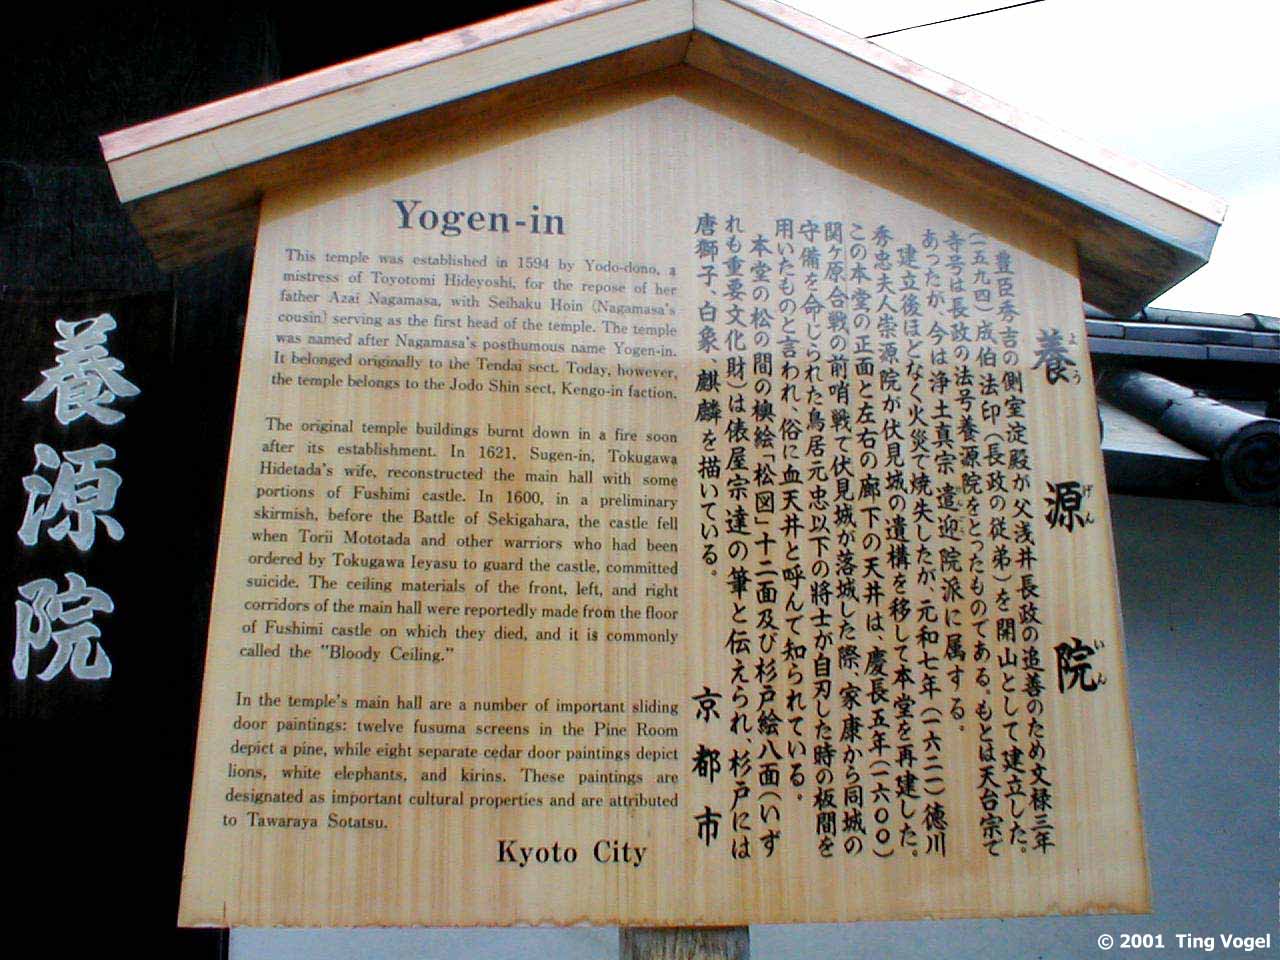 養源院
Yogen-in
This temple was established in 1594 by Yodo-dono, a
mistress of Toyotomi Hideyoshi, for the repose of her
father Azai Nagamasa, with Seihaku Hoin (Nagamasa's
cousin) serving as the first head of the temple. The temple
was named after Nagamasa's posthumous name Yogen-in.
It belonged originally to the Tendai sect. Today, however,
the temple belongs to the Jodo Shin sect, Kengo-in faction.
The original temple buildings burnt down in a fire soon
after its establishment. In 1621, Sugen-in, Tokugawa
Hidetada's wife, reconstructed the main hall with some
portions of Fushimi castle. In 1600, in a preliminary
skirmish, before the Battle of Sekigahara, the castle fell
when Torii Mototada and other warriors who had been
ordered by Tokugawa Ieyasu to guard the castle, committed
suicide. The ceiling materials of the front, left, and right
corridors of the main hall were reportedly made from the floor
of Fushimi castle on which they died, and it is commonly
called the "Bloody Ceiling."
In the temple's main hall are a number of important sliding
door paintings: twelve fusuma screens in the Pine Room
depict a pine, while eight separate cedar door paintings depict
lions, white elephants, and kirins. These paintings are
designated as important cultural properties and are attributed
to Tawaraya Sotatsu.
Kyoto City
養源院
よう げん いん
豊臣秀吉の側室淀殿が父浅井長政の追善のため文禄三年
(一五九四)成伯法印(長政の従弟)を開山として建立した。
寺号は長政の法号養源院をとったものである。もとは天台宗で
あったが、今は浄土真宗遣迎院派に属する。
建立後ほどなく火災で焼失したが、元和七年(一六二一)徳川
秀忠夫人崇源院が伏見城の遺構を移して本堂を再建した。
この本堂の正面と左右の廊下の天井は、慶長五年(一六〇〇)
関ヶ原合戦の前哨戦で伏見城が落城した際、家康から同城の
守備を命じられた鳥居元忠以下の将士が自刃した時の板間を
用いたものと言われ、俗に血天井と呼んで知られている。
本堂の松の間の襖絵「松図」十二面及び杉戸絵八面(いず
れも重要文化財)は俵屋宗達の筆と伝えられ、杉戸には
唐獅子、白象、麒麟を描いている。
京都市
© 2001 Ting Vogel